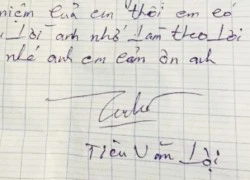 niệm của em thôi em có
lời anh nhớ làm theo lời
nhé anh em cảm ơn anh
Tiêu Văn Lợi